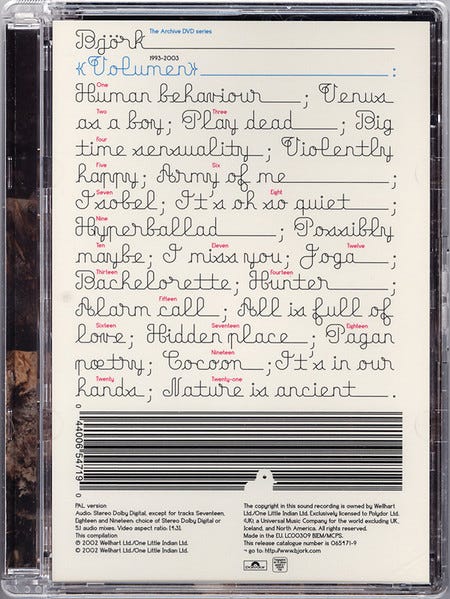 Björk The Archive DVD series
1993-2003
«Volumen» :
One
Human behaviour ; Venus
Two Three
as a boy; Play dead ; Big
Four
time sensuality ; Violently
Five Six
happy; Army of me ;
Seven Eight
Isobel; It's oh so quiet ;
Nine
Hyperballad ; Possibly
Ten Eleven Twelve
maybe; I miss you; Joga ;
Thirteen Fourteen
Bachelorette; Hunter ;
Fifteen
Alarm call ; All is full of
Sixteen Seventeen Eighteen
love; Hidden place ; Pagan
Nineteen
poetry; Cocoon ; It's in our
Twenty Twenty-one
hands ; Nature is ancient .
0 44006 54719 0
PAL version
Audio: Stereo Dolby Digital, except for tracks Seventeen,
Eighteen and Nineteen: choice of Stereo Dolby Digital or
5.1 audio mixes. Video aspect ratio:
This compilation
℗ 2002 Wellhart Ltd./One Little Indian Ltd.
© 2002 Wellhart Ltd./One Little Indian Ltd.
The copyright in this sound recording is owned by Wellhart
Ltd./One Little Indian Ltd. Exclusively licensed to Polydor Ltd.
(UK), a Universal Music Company for the world excluding UK,
Iceland, and North America. All rights reserved.
Made in the E.U. LC00309 BIEM/MCPS.
This release catalogue number is 065471-9
→ go to: http://www.bjork.com
polydor